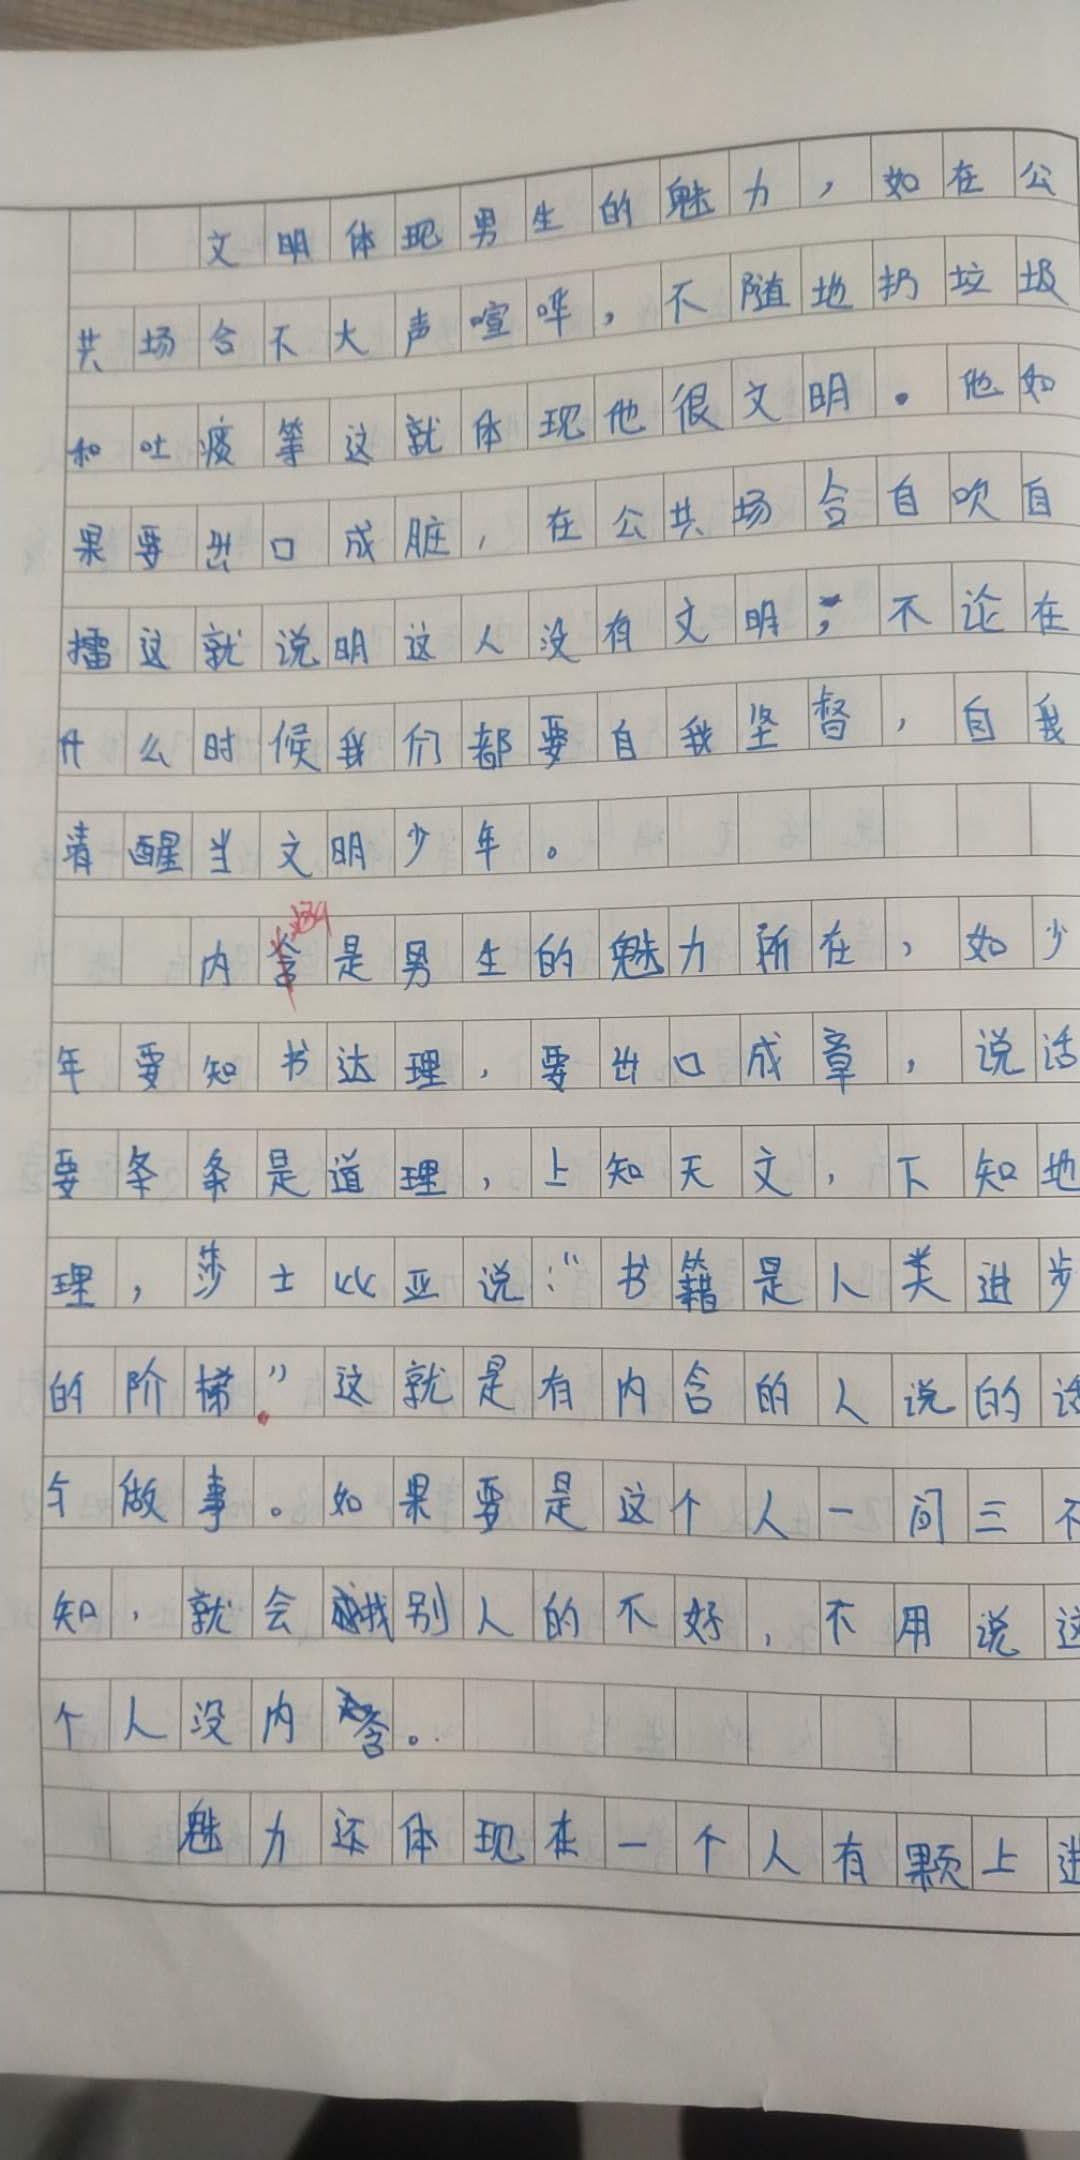 文明体现男生的魅力，如在公
共场合不大声喧哗，不随地扔垃圾
和吐痰等这就体现他很文明。他如
果要出口成脏，在公共场合自吹自
擂这就说明这人没有文明；不论在
什么时候我们都要自我坚督，自我
清醒当文明少年。
涵
内含是男生的魅力所在，如少
年要知书达理，要出口成章，说话
要条条是道理，上知天文，下知地
理，莎士比亚说：“书籍是人类进步
的阶梯。”这就是有内含的人说的话
与做事。如果要是这个人一问三不
知，就会找别人的不好，不用说这
个人没内含。
魅力还体现在一个人有颗上进